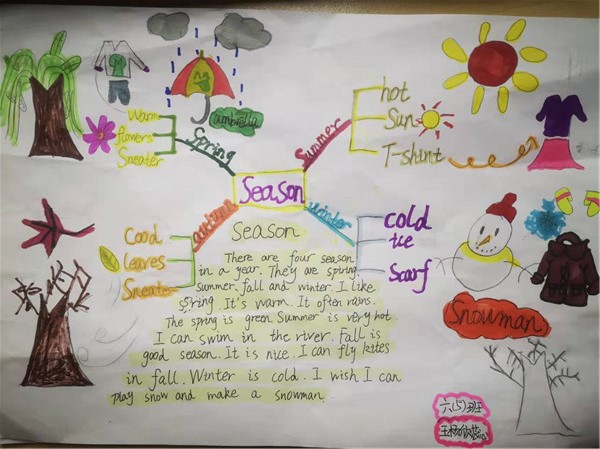 ambrella
Warm
flowers
Sneater
Spring
Summer
hot
Sun
T-shint
Season
autumn
Cood
leaves
Sneater
winter
cold
Ice
Scarf
Snowman
Season
There are four season
in a year. They are spring
summer, fall and winter. I like
spring. It's warm. It often rains.
The spring is green. Summer is very hot
I can swim in the river. Fall is
good season. It is nice. I can fly kites
in fall. Winter is cold. I wish I can
play snow and make a snowman.
六(5)班